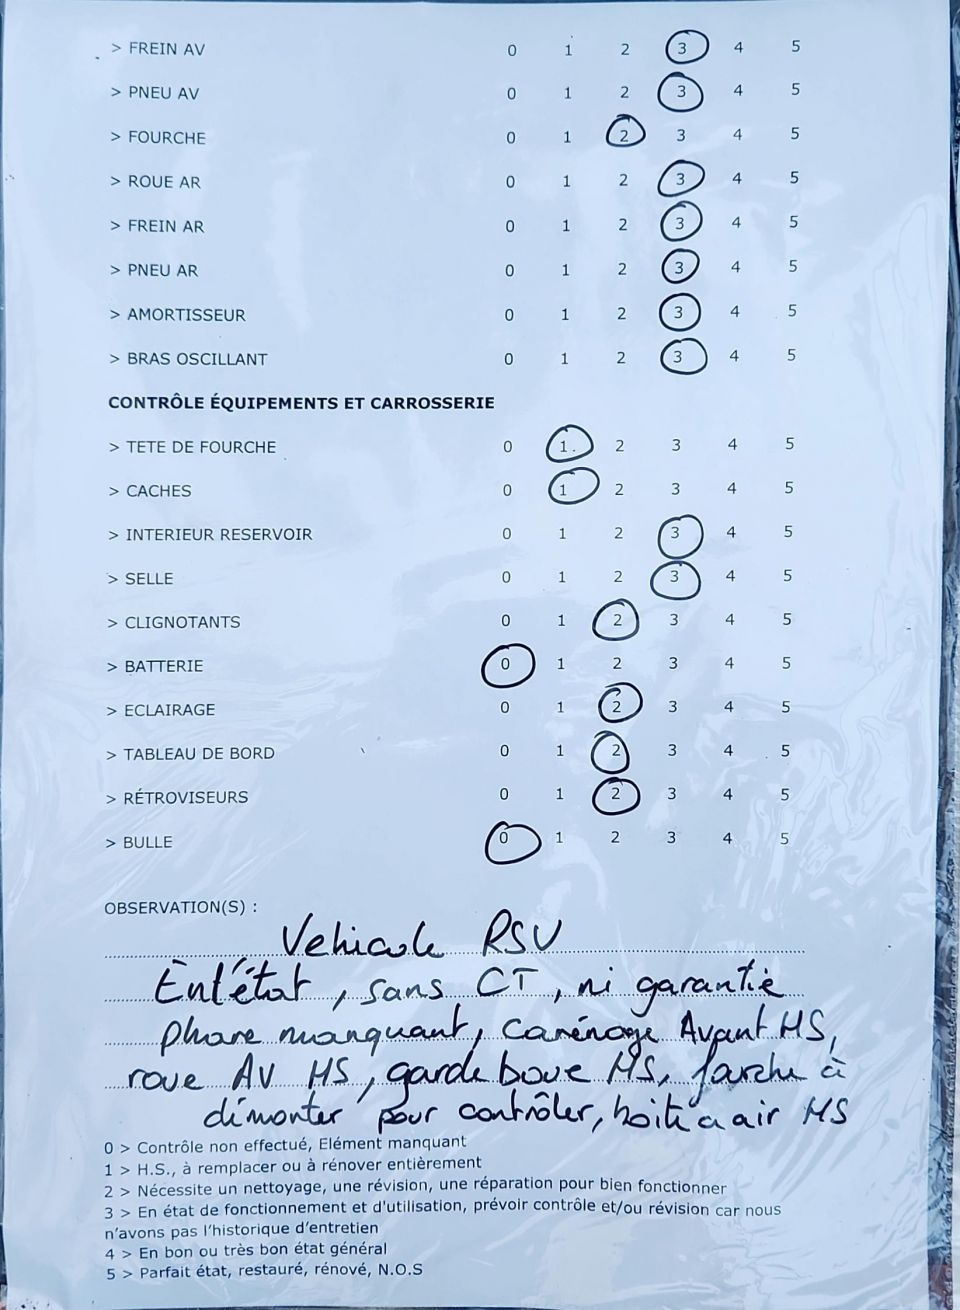 > FREIN AV 0 1 2 3 4 5
> PNEU AV 0 1 2 3 4 5
> FOURCHE 0 1 2 3 4 5
> ROUE AR 0 1 2 3 4 5
> FREIN AR 0 1 2 3 4 5
> PNEU AR 0 1 2 3 4 5
> AMORTISSEUR 0 1 2 3 4 5
> BRAS OSCILLANT 0 1 2 3 4 5
CONTRÔLE ÉQUIPEMENTS ET CARROSSERIE
> TETE DE FOURCHE 0 1 2 3 4 5
> CACHES 0 1 2 3 4 5
> INTERIEUR RESERVOIR 0 1 2 3 4 5
> SELLE 0 1 2 3 4 5
> CLIGNOTANTS 0 1 2 3 4 5
> BATTERIE 0 1 2 3 4 5
> ECLAIRAGE 0 1 2 3 4 5
> TABLEAU DE BORD 0 1 2 3 4 5
> RÉTROVISEURS 0 1 2 3 4 5
> BULLE 0 1 2 3 4 5
OBSERVATION(S) :
Vehicule RSV
En l'état, sans CT, ni garantie
phare manquant, carénage Avant HS,
roue AV HS, garde boue HS, fourche à
démonter pour contrôler, boite a air HS
0 > Contrôle non effectué, Elément manquant
1 > H.S., à remplacer ou à rénover entièrement
2 > Nécessite un nettoyage, une révision, une réparation pour bien fonctionner
3 > En état de fonctionnement et d'utilisation, prévoir contrôle et/ou révision car nous
n'avons pas l'historique d'entretien
4 > En bon ou très bon état général
5 > Parfait état, restauré, rénové, N.O.S